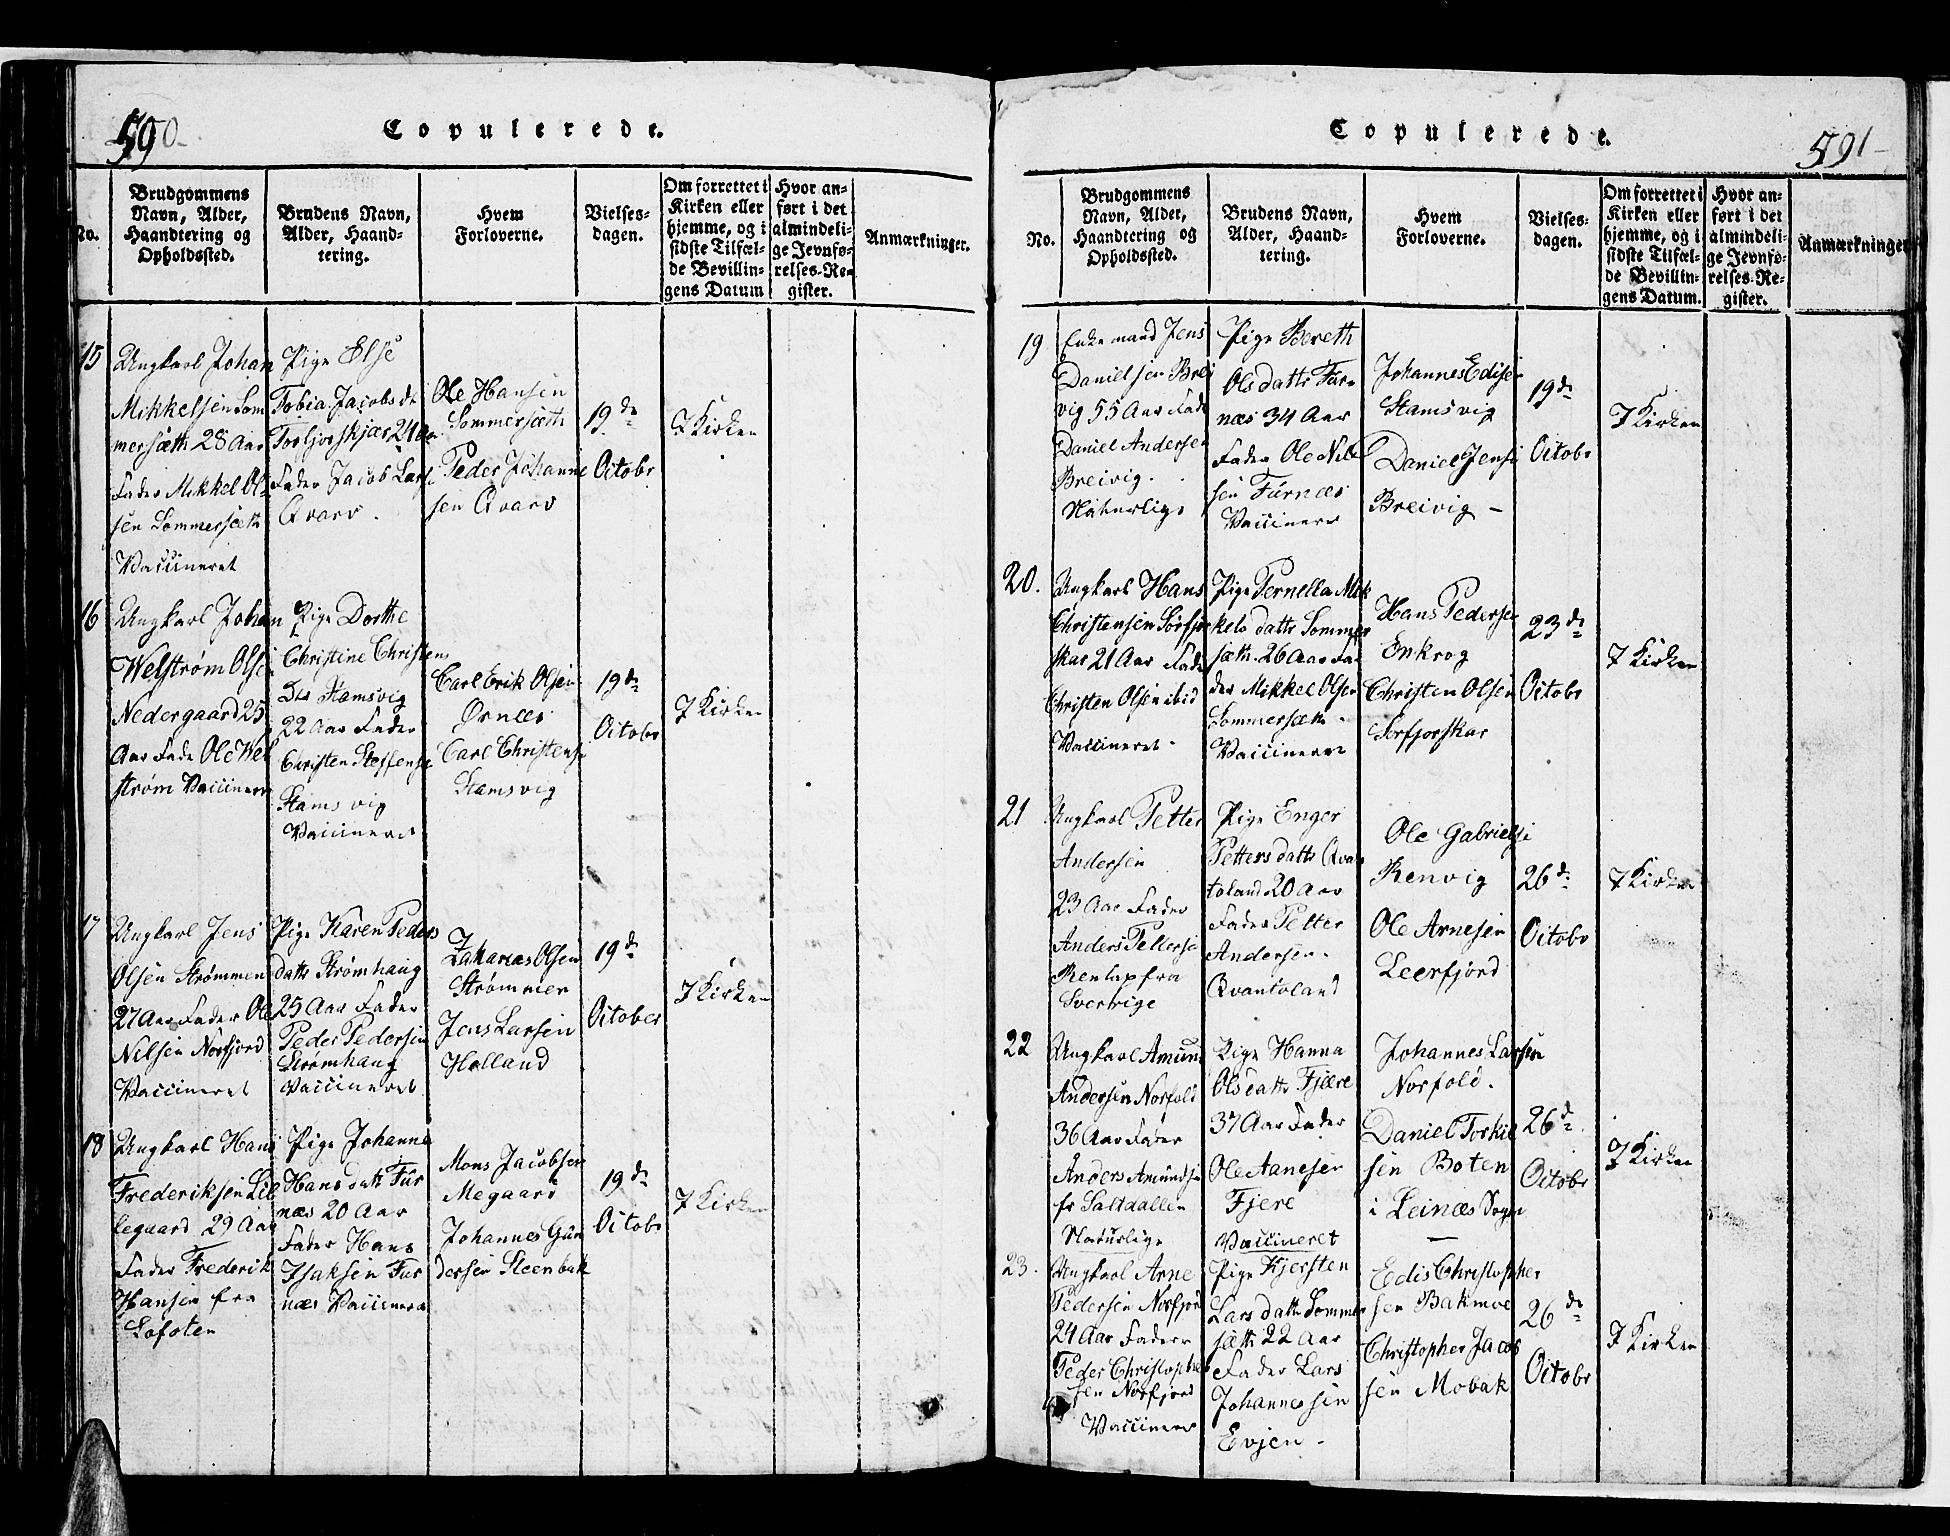 590
Copulerede.
No.
Brudgommens
Navn, Alder,
Haandtering og
Opholdssted.
Brudens Navn,
Alder, Haand-
tering.
Hvem
Forloverne.
Vielses-
dagen.
Om forrettet i
Kirken eller
hjemme, og i
sidste Tilfæl-
de Bevillin-
gens Datum
Hvor an-
ført i det
almindeli-
ge Jevnfø-
relses-Re-
gister.
Anmærkninger.
15
Ungkarl Johan
Mikkelsen Som
mersæth 28 Aar
Fader Mikkel Ol
sen Sommersæth
Vaccineret
Pige Else
Tobia Jacobsdr
Torfjorskjær 24 Aar
Fader Jacob Lars
Qvarv.
Ole Hansen
Sommersæth
Peder Johanne
sen Qvarv
19de
Octobr
I Kirken
16
Ungkarl Johan
Welstrøm Olsen
Nedergaard 25
Aar Fade Ole Wel
strøm Vaccinere
Pige Dorthe
Christine Christens
Dts Stamsvig
22 Aar Fader
Christen Steffense
Stamsvig
Vaccineret
Carl Erik Olsen
Ørnæs
Carl Christense
Stamsvig
19de
Octobr
I Kirken
17
Ungkarl Jens
Olsen Strømmen
27 Aar Fader Ole
Nilsen Norfjord
Vaccineret
Pige Karen Peders
datts Strømhaug
25 Aar Fader
Peder Pedersen
Strømhaug
Vaccineret
Zakarias Olsen
Strømmer
Jens Larsen
Holland
19de
October
I Kirken
18
Ungkarl Hans
Frederiksen Lil
legaard 29 Aar
Fader Frederik
Hansen fra
Lofoten
Pige Johanna
Hansdatt Fur
næs 20 Aar
Fader Hans
Isaksen Fur
næs Vaccinere
Mons Jacobsen
Megaard
Johannes Gun
dersen Steenbak
19de
Octobr
I Kirken
591
Copulerede.
No.
Brudgommens
Navn, Alder,
Haandtering og
Opholdssted.
Brudens Navn,
Alder, Haand-
tering.
Hvem
Forloverne.
Vielses-
dagen.
Om forrettet i
Kirken eller
hjemme, og i
sidste Tilfæl-
de Bevillin-
gens Datum.
Hvor an-
ført i det
almindeli-
ge Jevnfø-
relses-Re-
gister.
Anmærkninger
19
Enkemand Jens
Danielsen Brei
vig 55 Aar Fade
Daniel Andersen
Breivig.
Naturlige
Pige Bereth
Olsdatts Fur
næs 34 Aar
Fader Ole Nils
sen Furnæs
Vaccinere
Johannes Edisen
Stamsvig
Daniel Jense
Breivig -
19de
Octobr
I Kirken
20.
Ungkarl Hans
Christensen Sørfjor
skar 21 Aar Fade
Christen Olsen ibid
Vaccineret -
Pige Pernella Mik
kels datts Sommer
sæth 26 Aar Fa
der Mikkel Olsen
Sommersæth -
Vaccineret
Hans Pedersen
Enkrog
Christen Olsen
Sørfjorskar
23de
Octobr
I Kirken
21
Ungkarl Petter
Andersen
23 Aar Fader
Anders Pettersen
Renlap fra
Sverrige
Pige Enger
Petters datts Qvan
toland 20 Aar
Fader Petter
Andersen -
Qvantoland
Ole Gabrielse
Renvig
Ole Arnesen
Leerfjord
26de
Octobr
I Kirken
22
Ungkarl Amund
Andersen Norfold
36 Aar Fader
Anders Amundsen
fr Saltdallen
Naturlige
Pige Hanna
Olsdatts Fjære
37 Aar Fader
Ole Aanesen
Fjere
Vaccineret
Johannes Larsen
Norfold.
Daniel Torkil
sen Boten
i Leinæs Sogn
26de
Octobr
I Kirken
23.
Ungkarl Arne
Pedersen Norfjord
24 Aar Fader
Peder Christophers
sen Norfjord
Vaccinere
Pige Kjersten
Lars datts Sommer
sæth 22 Aar
Fader Lars
Johannessen
Evjen -
Edis Christopher
sen Bakmoe
Christopher Jacob
sen Mobak
26de
Octobr
I Kirken